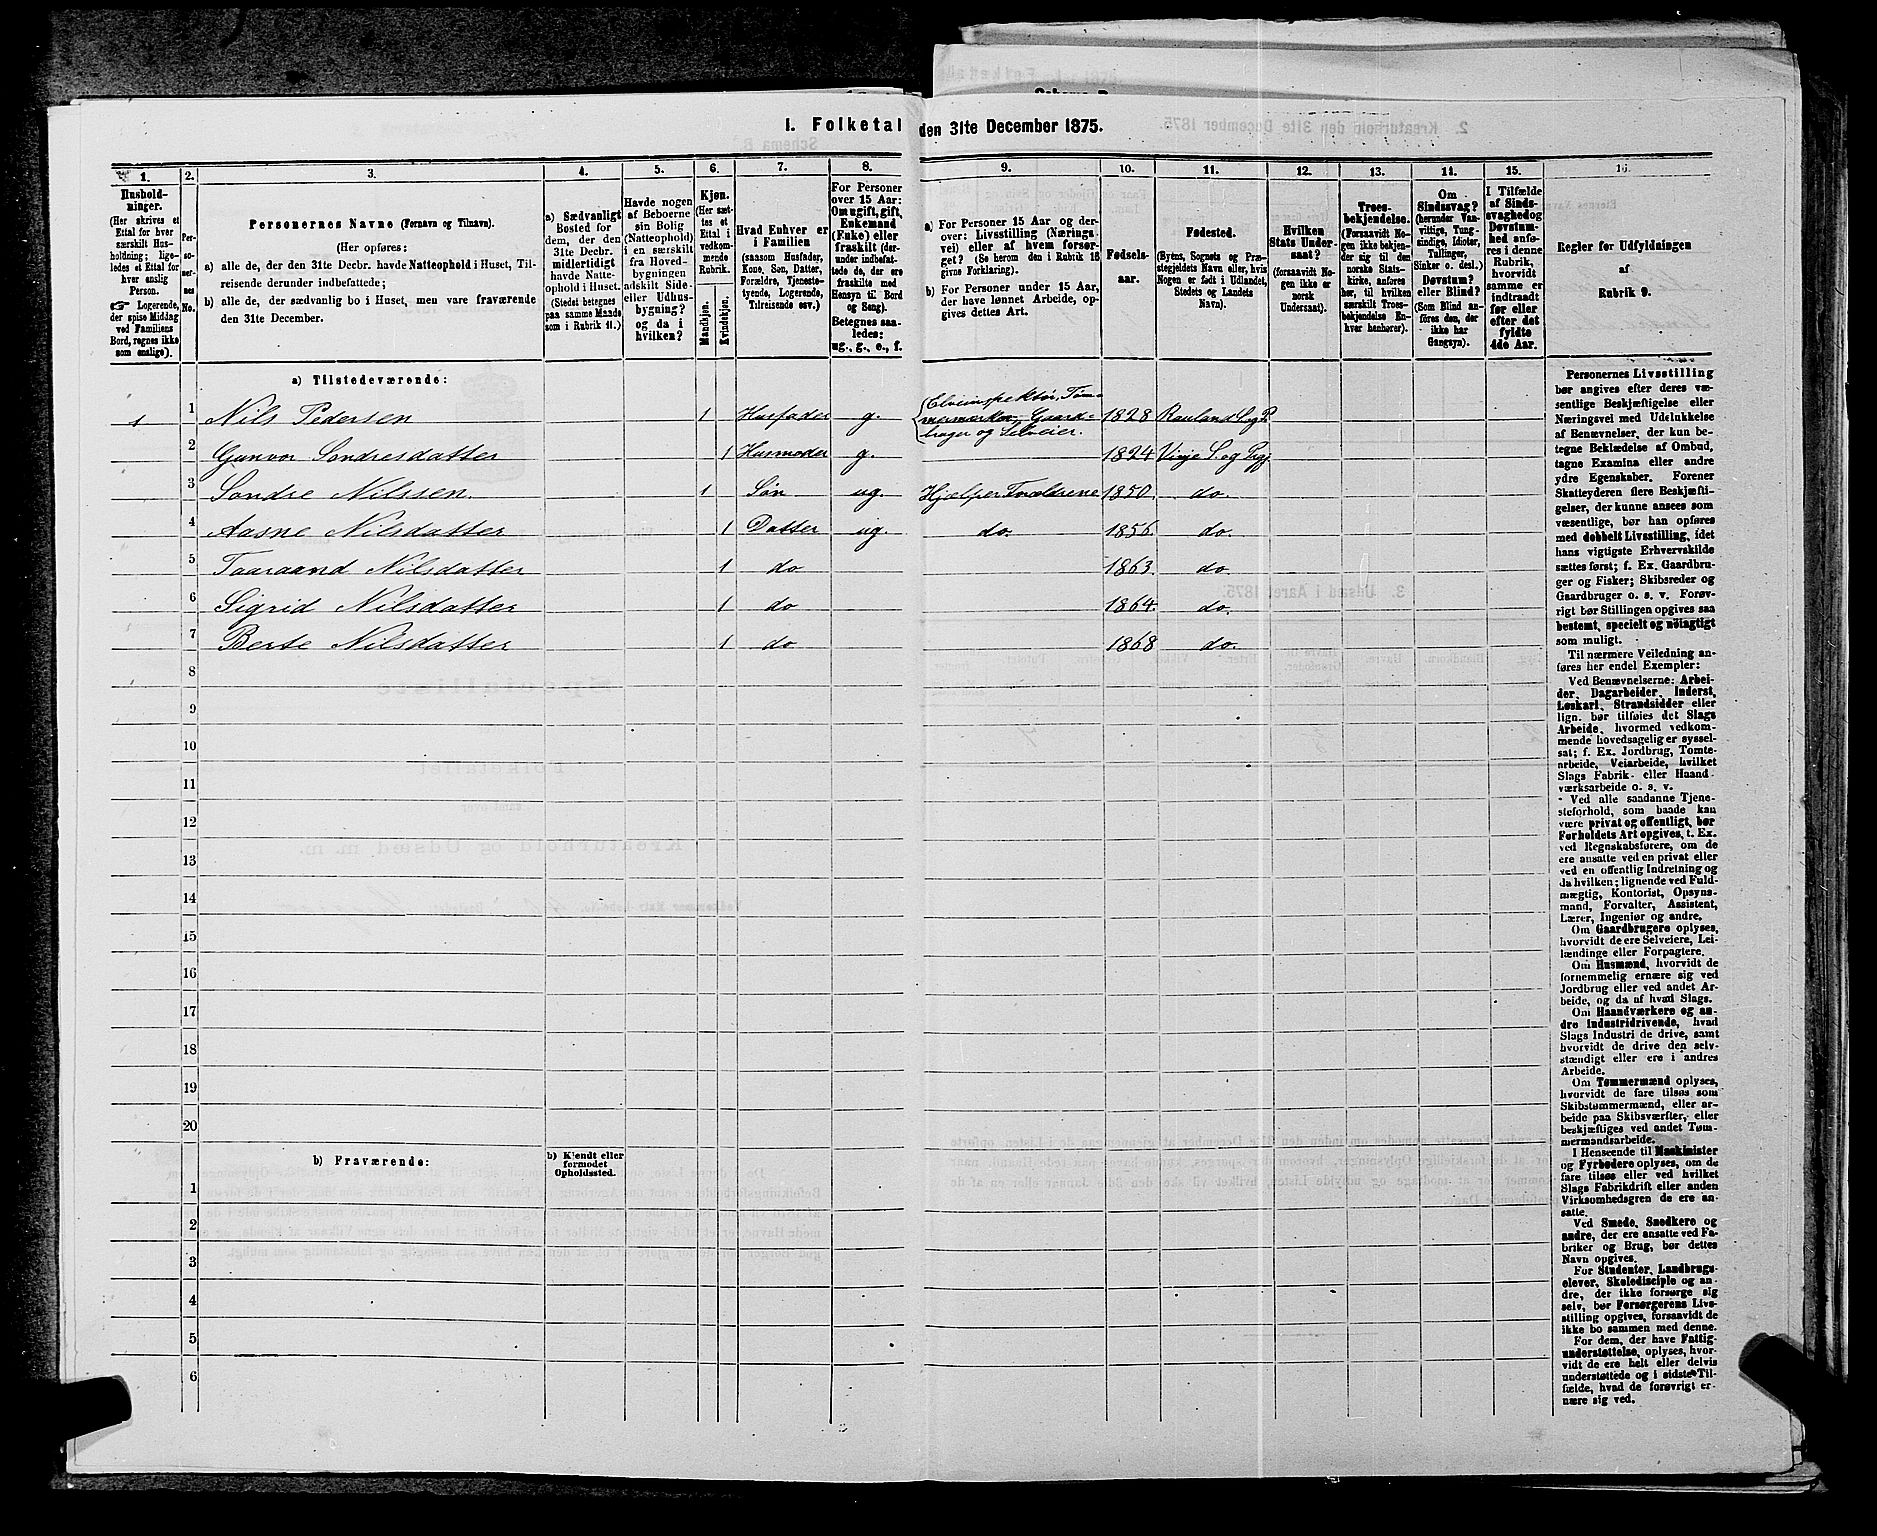 1. Folketal den 31te December 1875.
1.
Hushold-
ninger.
(Her skrives et
Ettal for hver
særskilt Hus-
holdning; lige-
ledes et Ettal for
hver enslig
Person.
☞ Logerende,
der spise Middag
ved Familiens
Bord, regnes ikke
som enslige).
2.
Per-
so-
ner-
nes
No.
3.
Personernes Navne (Fornavn og Tilnavn).
(Her opføres:
a) alle de, der den 31te Decbr. havde Natteophold i Huset, Til-
reisende derunder indbefattede;
b) alle de, der sædvanlig bo i Huset, men vare fraværende
den 31te December.
4.
a) Sædvanligt
Bosted for
dem, der den
31te Decbr.
midlertidigt
havde Natte-
ophold i Huset.
(Stedet betegnes
paa samme Maade
som i Rubrik 11.)
5.
Havde nogen
af Beboerne
sin Bolig
(Natteophold)
i en særskilt
fra Hoved-
bygningen
adskilt Side-
eller Udhus-
bygning?
og da i
hvilken?
6.
Kjøn.
(Her sæt-
tes et
Ettal i
vedkom-
mende
Rubrik.
Mandkjøn.
Kvindekjøn.
7.
Hvad Enhver er
i Familien
(saasom Husfader,
Kone, Søn, Datter,
Forældre, Tjeneste-
tyende, Logerende,
Tilreisende osv.)
8.
For Personer
over 15 Aar:
Om ugift, gift,
Enkemand
(Enke) eller
fraskilt (der-
under indbefat-
tede de, der ere
fraskilte med
Hensyn til Bord
og Seng).
Betegnes saa-
ledes:
ug., g., e., f.
9.
a) For Personer 15 Aar og der-
over: Livsstilling (Nærings-
vei) eller af hvem forsør-
get? (Se herom den i Rubrik 16
givne Forklaring).
b) For Personer under 15 Aar,
der have lønnet Arbeide, op-
gives dettes Art.
10.
Fødsels-
aar.
11.
Fødested.
(Byens, Sognets og Præ-
stegjeldets Navn eller, hvis
Nogen er født i Udlandet,
Stedets og Landets
Navn).
12.
Hvilken
Stats Under-
saat?
(forsaavidt No-
gen ikke er
norsk
Undersaat).
13.
Troes-
bekjendelse.
(Forsaavidt No-
gen ikke bekjen-
der sig til den
norske Stats-
kirke, anføres
her, til hvilken
særskilt Troes-
bekjendelse En-
hver henhører).
14.
Om
Sindssvag?
(herunder Van-
vittige, Tung-
sindige, Idioter,
Tullinger,
Sinker o. desl.)
Døvstum?
eller Blind?
(Som Blind an-
føres den, der
ikke har
Gangsyn).
15.
I Tilfælde
af Sinds-
svaghed og
Døvstum-
hed anfø-
res i denne
Rubrik,
hvorvidt
samme er
indtraadt
før eller
efter det
fyldte
4de Aar.
16.
Regler for Udfyldningen
af
Rubrik 9.
a) Tilstedeværende:
1 1 Nils Pedersen 1 Husfader g. Elveinspektør, Tøm-
mermærker, Gaard-
bruger og Selveier. 1828 Rauland S. og P.
2 Gunvor Sondresdatter 1 Husmoder g. 1824 Vinje S. og Pgj.
3 Sondre Nilssen. 1 Søn ug. Hjælper Forældrene 1850. do.
4 Aasne Nilsdatter 1 Datter ug. do. 1856. do.
5 Taaraand Nilsdatter 1 do 1863. do.
6 Sigrid Nilsdatter 1 do 1864. do.
7 Berte Nilsdatter 1 do 1868 do.
8
9
10
11
12
13
14
15
16
17
18
19
20
b) Fraværende:
b) Kjendt eller
formodet
Opholdssted.
1
2
3
4
5
6
Personernes Livsstilling
bør angives efter deres væ-
sentlige Beskjæftigelse eller
Næringsvei med Udelukkelse
af Benævnelser, der kun be-
tegne Beklædelse af Ombud,
tagne Examina eller andre
ydre Egenskaber. Forener
Skatteyderen flere Beskjæfti-
gelser, der kunne ansees som
væsentlige, bør han opføres
med dobbelt Livsstilling, idet
hans vigtigste Erhvervskilde
sættes først; f. Ex. Gaardbru-
ger og Fisker; Skibsreder og
Gaardbruger o. s. v. Forøv-
rigt bør Stillingen opgives saa
bestemt, specielt og nöiagtigt
som muligt.
Til nærmere Veiledning an-
føres her endel Exempler:
Ved Benævnelserne: Arbei-
der, Dagarbeider, Inderst,
Løskarl, Strandsidder eller
lign. bør tilføies det Slags
Arbeide, hvormed vedkom-
mende hovedsagelig er syssel-
sat; f. Ex. Jordbrug, Tomte-
arbeide, Veiarbeide, hvilket
Slags Fabrik- eller Haand-
værksarbeide o. s. v.
Ved alle saadanne Tjene-
steforhold, som baade kan
være privat og offentligt, bør
Forholdets Art opgives, t. Ex.
ved Regnskabsførere, om de
ere ansatte ved en privat eller
ved en offentlig Indretning og
da hvilken; lignende ved Fuld-
mægtig, Kontorist, Opsyns-
mand, Forvalter, Assistent,
Lærer, Ingeniør og andre.
Om Gaardbrugere oplyses,
hvorvidt de ere Selveiere, Lei-
lændinge eller Forpagtere.
Om Husmænd, hvorvidt de
fornemmelig ernære sig ved
Jordbrug eller ved andet Ar-
beide, og da af hvad Slags.
Om Haandværkere og an-
dre Industridrivende, hvad
Slags Industri de drive, samt
hvorvidt de drive den selv-
stændigt eller ere i andres
Arbeide.
Om Tømmermænd oplyses,
hvorvidt de fare tilsøs som
Skibstømmermænd, eller ar-
beide paa Skibsværfter, eller
beskjæftiges ved andet Tøm-
mermandsarbeide.
I Henseende til Maskinister
og Fyrbødere oplyses, om de
fare tilsøs eller ved hvilket
Slags Fabrikdrift eller anden
Virksomhedsgren de ere an-
satte.
Ved Smede, Snedkere og
andre, der ere ansatte ved Fa-
briker og Brug, bør dettes
Navn opgives.
For Studenter, Landbrugs-
elever, Skoledisciple og an-
dre, der ikke forsørge sig
selv, bør Forsørgerens Livs-
stilling opgives, forsaavidt de
ikke bo sammen med denne.
For dem, der have Fattig-
understøttelse, oplyses, hvor-
vidt de ere helt eller delvis
understøttede og i sidste Til-
fælde, hvad de forøvrigt er-
nære sig ved.